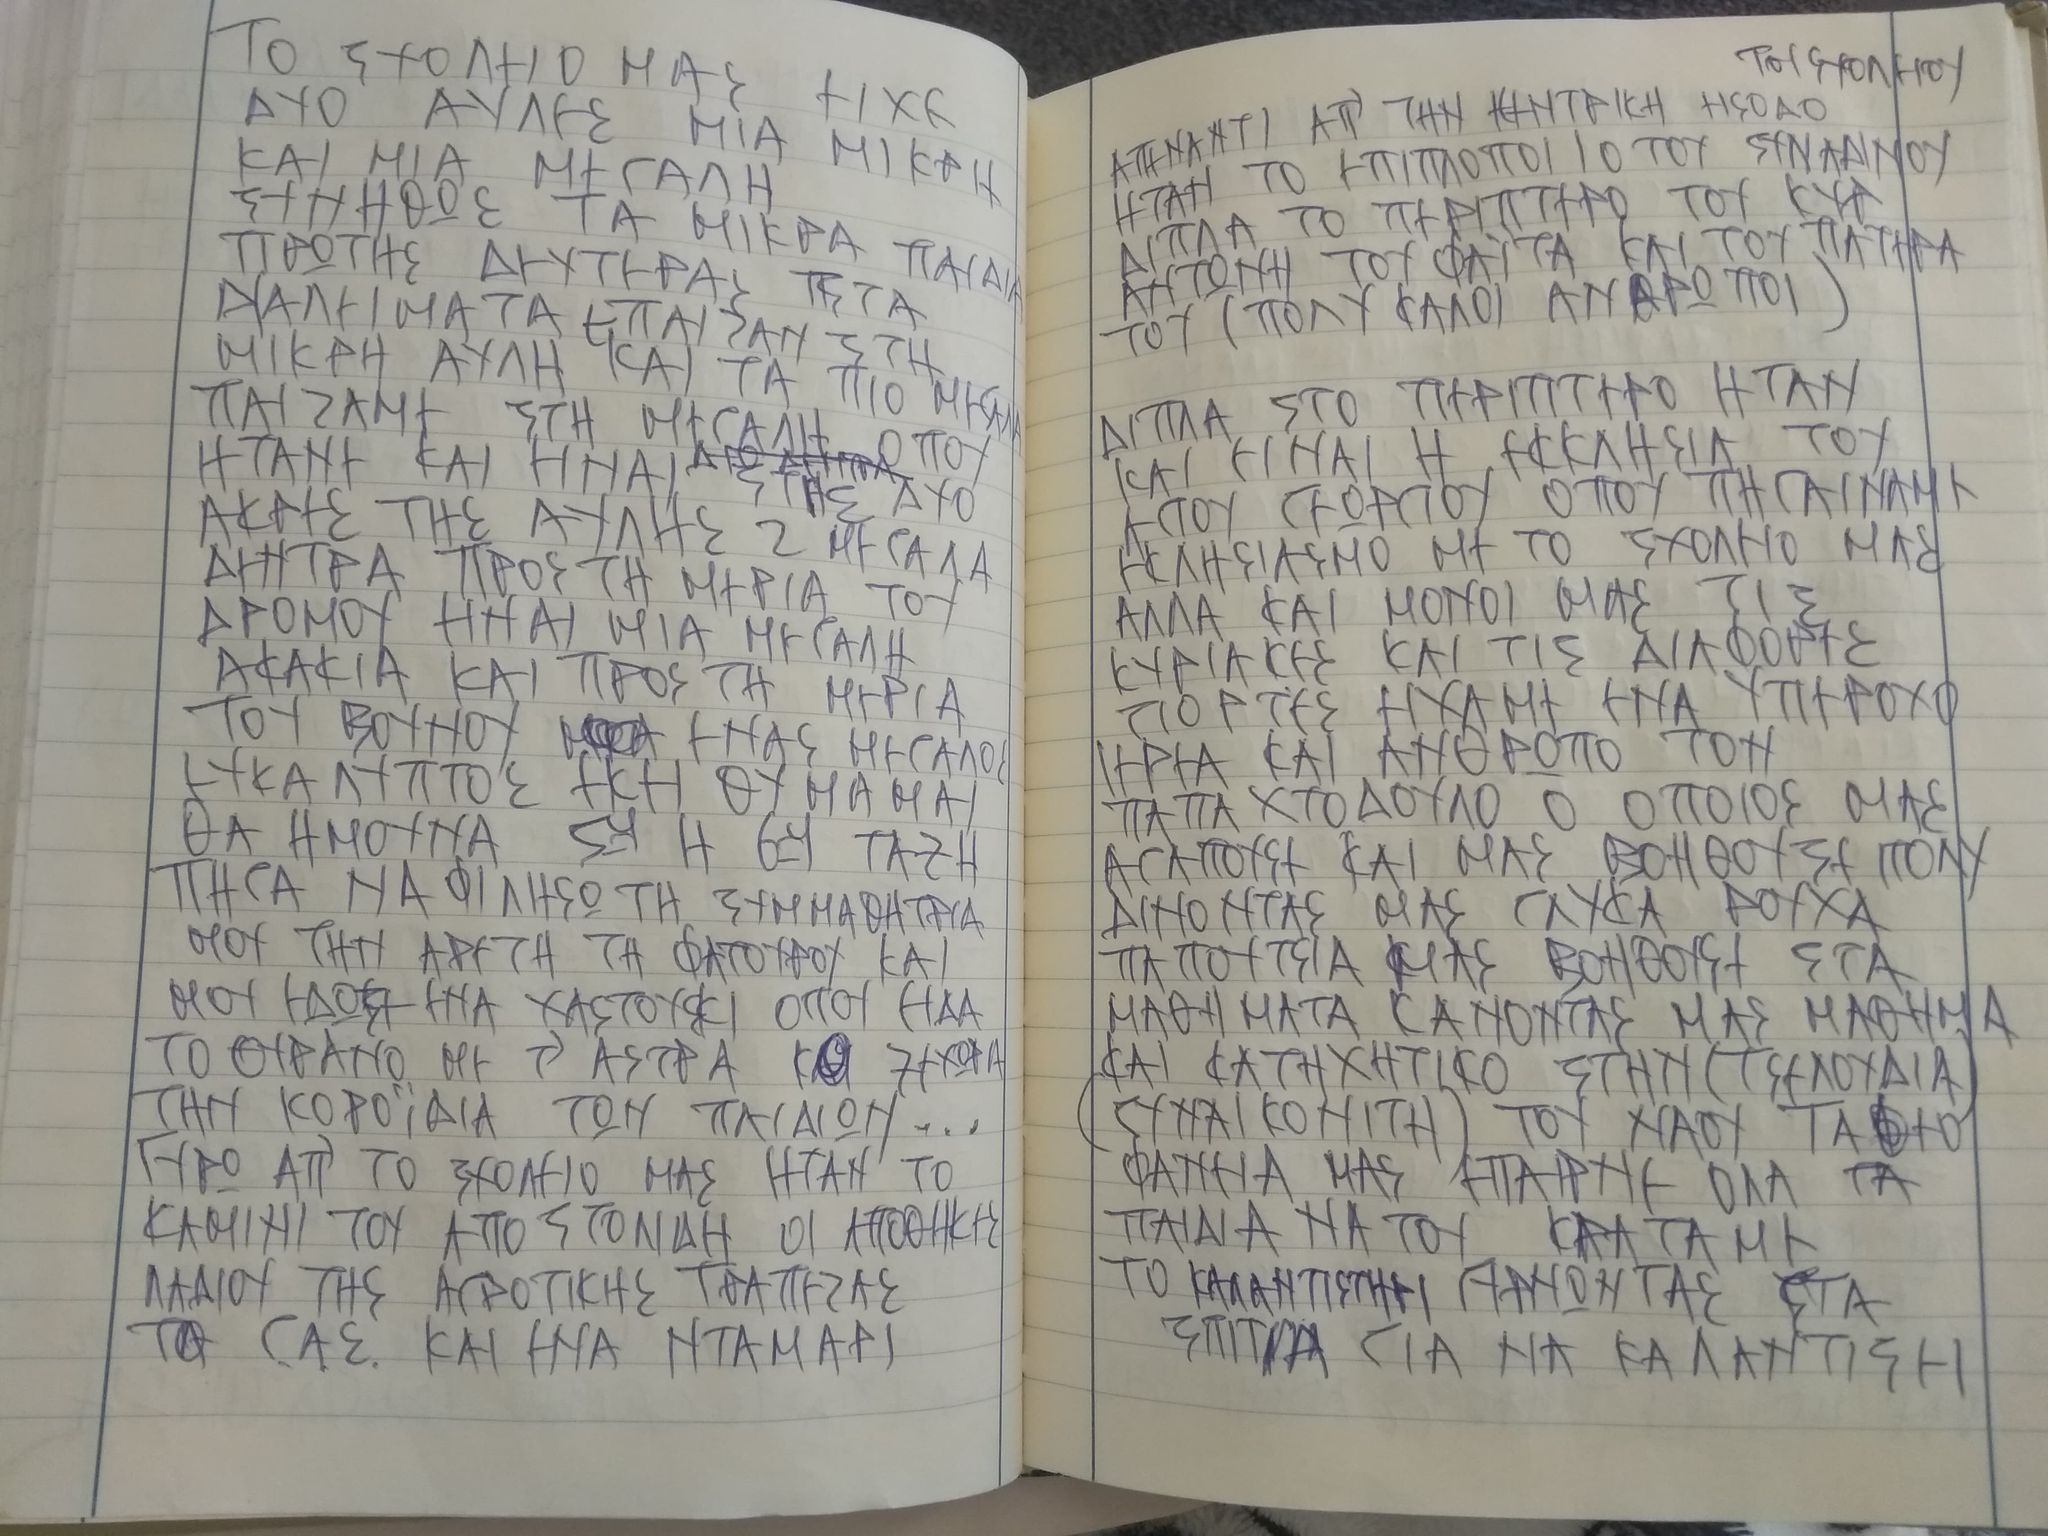 ΤΟ ΣΧΟΛΕΙΟ ΜΑΣ ΕΙΧΕ
ΔΥΟ ΑΥΛΕΣ ΜΙΑ ΜΙΚΡΗ
ΚΑΙ ΜΙΑ ΜΕΓΑΛΗ
ΣΥΝΗΘΩΣ ΤΑ ΜΙΚΡΑ ΠΑΙΔΙΑ
ΠΡΩΤΗΣ ΔΕΥΤΕΡΑΣ ΣΤΑ
ΔΙΑΛΕΙΜΑΤΑ ΕΠΑΙΖΑΝ ΣΤΗ
ΜΙΚΡΗ ΑΥΛΗ ΚΑΙ ΤΑ ΠΙΟ ΜΕΓΑΛΑ
ΠΑΙΖΑΜΕ ΣΤΗ ΜΕΓΑΛΗ ΟΠΟΥ
ΗΤΑΝΕ ΚΑΙ ΗΝΑΙ ΣΤΗΣ ΔΥΟ
ΑΚΡΕΣ ΤΗΣ ΑΥΛΗΣ 2 ΜΕΓΑΛΑ
ΔΕΝΤΡΑ ΠΡΟΣ ΤΗ ΜΕΡΙΑ ΤΟΥ
ΔΡΟΜΟΥ ΗΝΑΙ ΜΙΑ ΜΕΓΑΛΗ
ΑΚΑΚΙΑ ΚΑΙ ΠΡΟΣ ΤΗ ΜΕΡΙΑ
ΤΟΥ ΒΟΥΝΟΥ ΕΝΑΣ ΜΕΓΑΛΟΣ
ΕΥΚΑΛΥΠΤΟΣ ΕΚΗ ΘΥΜΑΜΑΙ
ΘΑ ΗΜΟΥΝΑ 5Η Η 6Η ΤΑΞΗ
ΠΗΓΑ ΝΑ ΦΙΛΗΣΩ ΤΗ ΣΥΜΜΑΘΗΤΡΙΑ
ΜΟΥ ΤΗΝ ΑΡΕΤΗ ΤΗ ΦΑΤΟΥΡΟΥ ΚΑΙ
ΜΟΥ ΕΔΩΣΕ ΕΝΑ ΧΑΣΤΟΥΚΙ ΟΠΟΥ ΗΔΑ
ΤΟ ΟΥΡΑΝΟ ΜΕ Τ' ΑΣΤΡΑ ΞΕΧΩΡΑ
ΤΗΝ ΚΟΡΟΪΔΙΑ ΤΩΝ ΠΑΙΔΙΩΝ...
ΓΥΡΩ ΑΠ' ΤΟ ΣΧΟΛΕΙΟ ΜΑΣ ΗΤΑΝ ΤΟ
ΚΑΜΙΝΙ ΤΟΥ ΑΠΟΣΤΟΛΙΔΗ ΟΙ ΑΠΟΘΗΚΕΣ
ΛΑΔΙΟΥ ΤΗΣ ΑΓΡΟΤΙΚΗΣ ΤΡΑΠΕΖΑΣ
ΤΑ Γ.Α.Σ. ΚΑΙ ΕΝΑ ΝΤΑΜΑΡΙ
ΤΟΥ ΣΧΟΛΕΙΟΥ
ΑΠΕΝΑΝΤΙ ΑΠ' ΤΗΝ ΚΕΝΤΡΙΚΗ ΗΣΟΔΟ
ΗΤΑΝ ΤΟ ΕΠΙΠΛΟΠΟΙΙΟ ΤΟΥ ΣΥΝΑΔΙΝΟΥ
ΔΙΠΛΑ ΤΟ ΠΕΡΙΠΤΕΡΟ ΤΟΥ ΚΥΡ
ΑΝΤΩΝΗ ΤΟΥ ΦΑΪΤΑ ΚΑΙ ΤΟΥ ΠΑΤΕΡΑ
ΤΟΥ (ΠΟΛΥ ΚΑΛΟΙ ΑΝΘΡΩΠΟΙ)
ΔΙΠΛΑ ΣΤΟ ΠΕΡΙΠΤΕΡΟ ΗΤΑΝ
ΚΑΙ ΕΙΝΑΙ Η ΕΚΚΛΗΣΙΑ ΤΟΥ
ΑΓΙΟΥ ΓΕΩΡΓΙΟΥ ΟΠΟΥ ΠΗΓΑΙΝΑΜΕ
ΕΚΛΗΣΙΑΣΜΟ ΜΕ ΤΟ ΣΧΟΛΕΙΟ ΜΑΣ
ΑΛΛΑ ΚΑΙ ΜΟΝΟΙ ΜΑΣ ΤΙΣ
ΚΥΡΙΑΚΕΣ ΚΑΙ ΤΙΣ ΔΙΑΦΟΡΕΣ
ΓΙΟΡΤΕΣ ΗΧΑΜΕ ΕΝΑ ΥΠΕΡΟΧΟ
ΙΕΡΕΑ ΚΑΙ ΑΝΘΡΩΠΟ ΤΟΝ
ΠΑΠΑ ΧΤΟΔΟΥΛΟ Ο ΟΠΟΙΟΣ ΜΑΣ
ΑΓΑΠΟΥΣΕ ΚΑΙ ΜΑΣ ΒΟΗΘΟΥΣΕ ΠΟΛΥ
ΔΙΝΟΝΤΑΣ ΜΑΣ ΓΛΥΚΑ ΡΟΥΧΑ
ΠΑΠΟΥΤΣΙΑ ΜΑΣ ΒΟΗΘΟΥΣΕ ΣΤΑ
ΜΑΘΗΜΑΤΑ ΚΑΝΟΝΤΑΣ ΜΑΣ ΜΑΘΗΜΑ
ΚΑΙ ΚΑΤΗΧΗΤΙΚΟ ΣΤΗΝ (ΤΣΕΛΟΥΔΙΑ)
(ΓΥΝΑΙΚΟΝΙΤΗ) ΤΟΥ ΝΑΟΥ ΤΑ ΘΕΟ
ΦΑΝΕΙΑ ΜΑΣ ΕΠΑΙΡΝΕ ΟΛΑ ΤΑ
ΠΑΙΔΙΑ ΝΑ ΤΟΥ ΚΡΑΤΑΜΕ
ΤΟ ΚΑΛΑΝΤΙΣΤΗΡΙ ΓΥΡΝΩΝΤΑΣ ΣΤΑ
ΣΠΙΤΙΑ ΓΙΑ ΝΑ ΚΑΛΑΝΤΙΣΕΙ